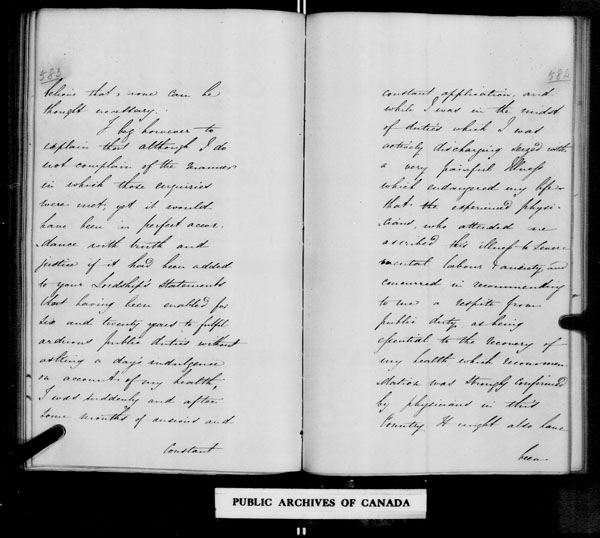 583
believe that, none can be
thought necessary.
I beg however to
explain that although I do
not complain of the manner
in which those enquiries
were met, yet it would
have been in perfect accor
dance with truth and
justice if it had been added
to your Lordship's Statements
that having been enabled for
six and twenty years to fulfil
arduous public duties without
asking a day's indulgence
on account of my health
I was suddenly and after
some months of anxious and
Constant
584
constant application, and
while I was in the midst
of duties which I was
actively discharging seized with
a very painful Illness
which endangered my life
that the experienced physi
cians, who attended me
ascribed this illness to severe
mental labour & anxiety, and
concurred in recommending
to me a respite from
public duty, as being
essential to the recovery of
my health which recommen
dation was strongly confirmed
by physicians in this
Country. It might also have
been
PUBLIC ARCHIVES OF CANADA